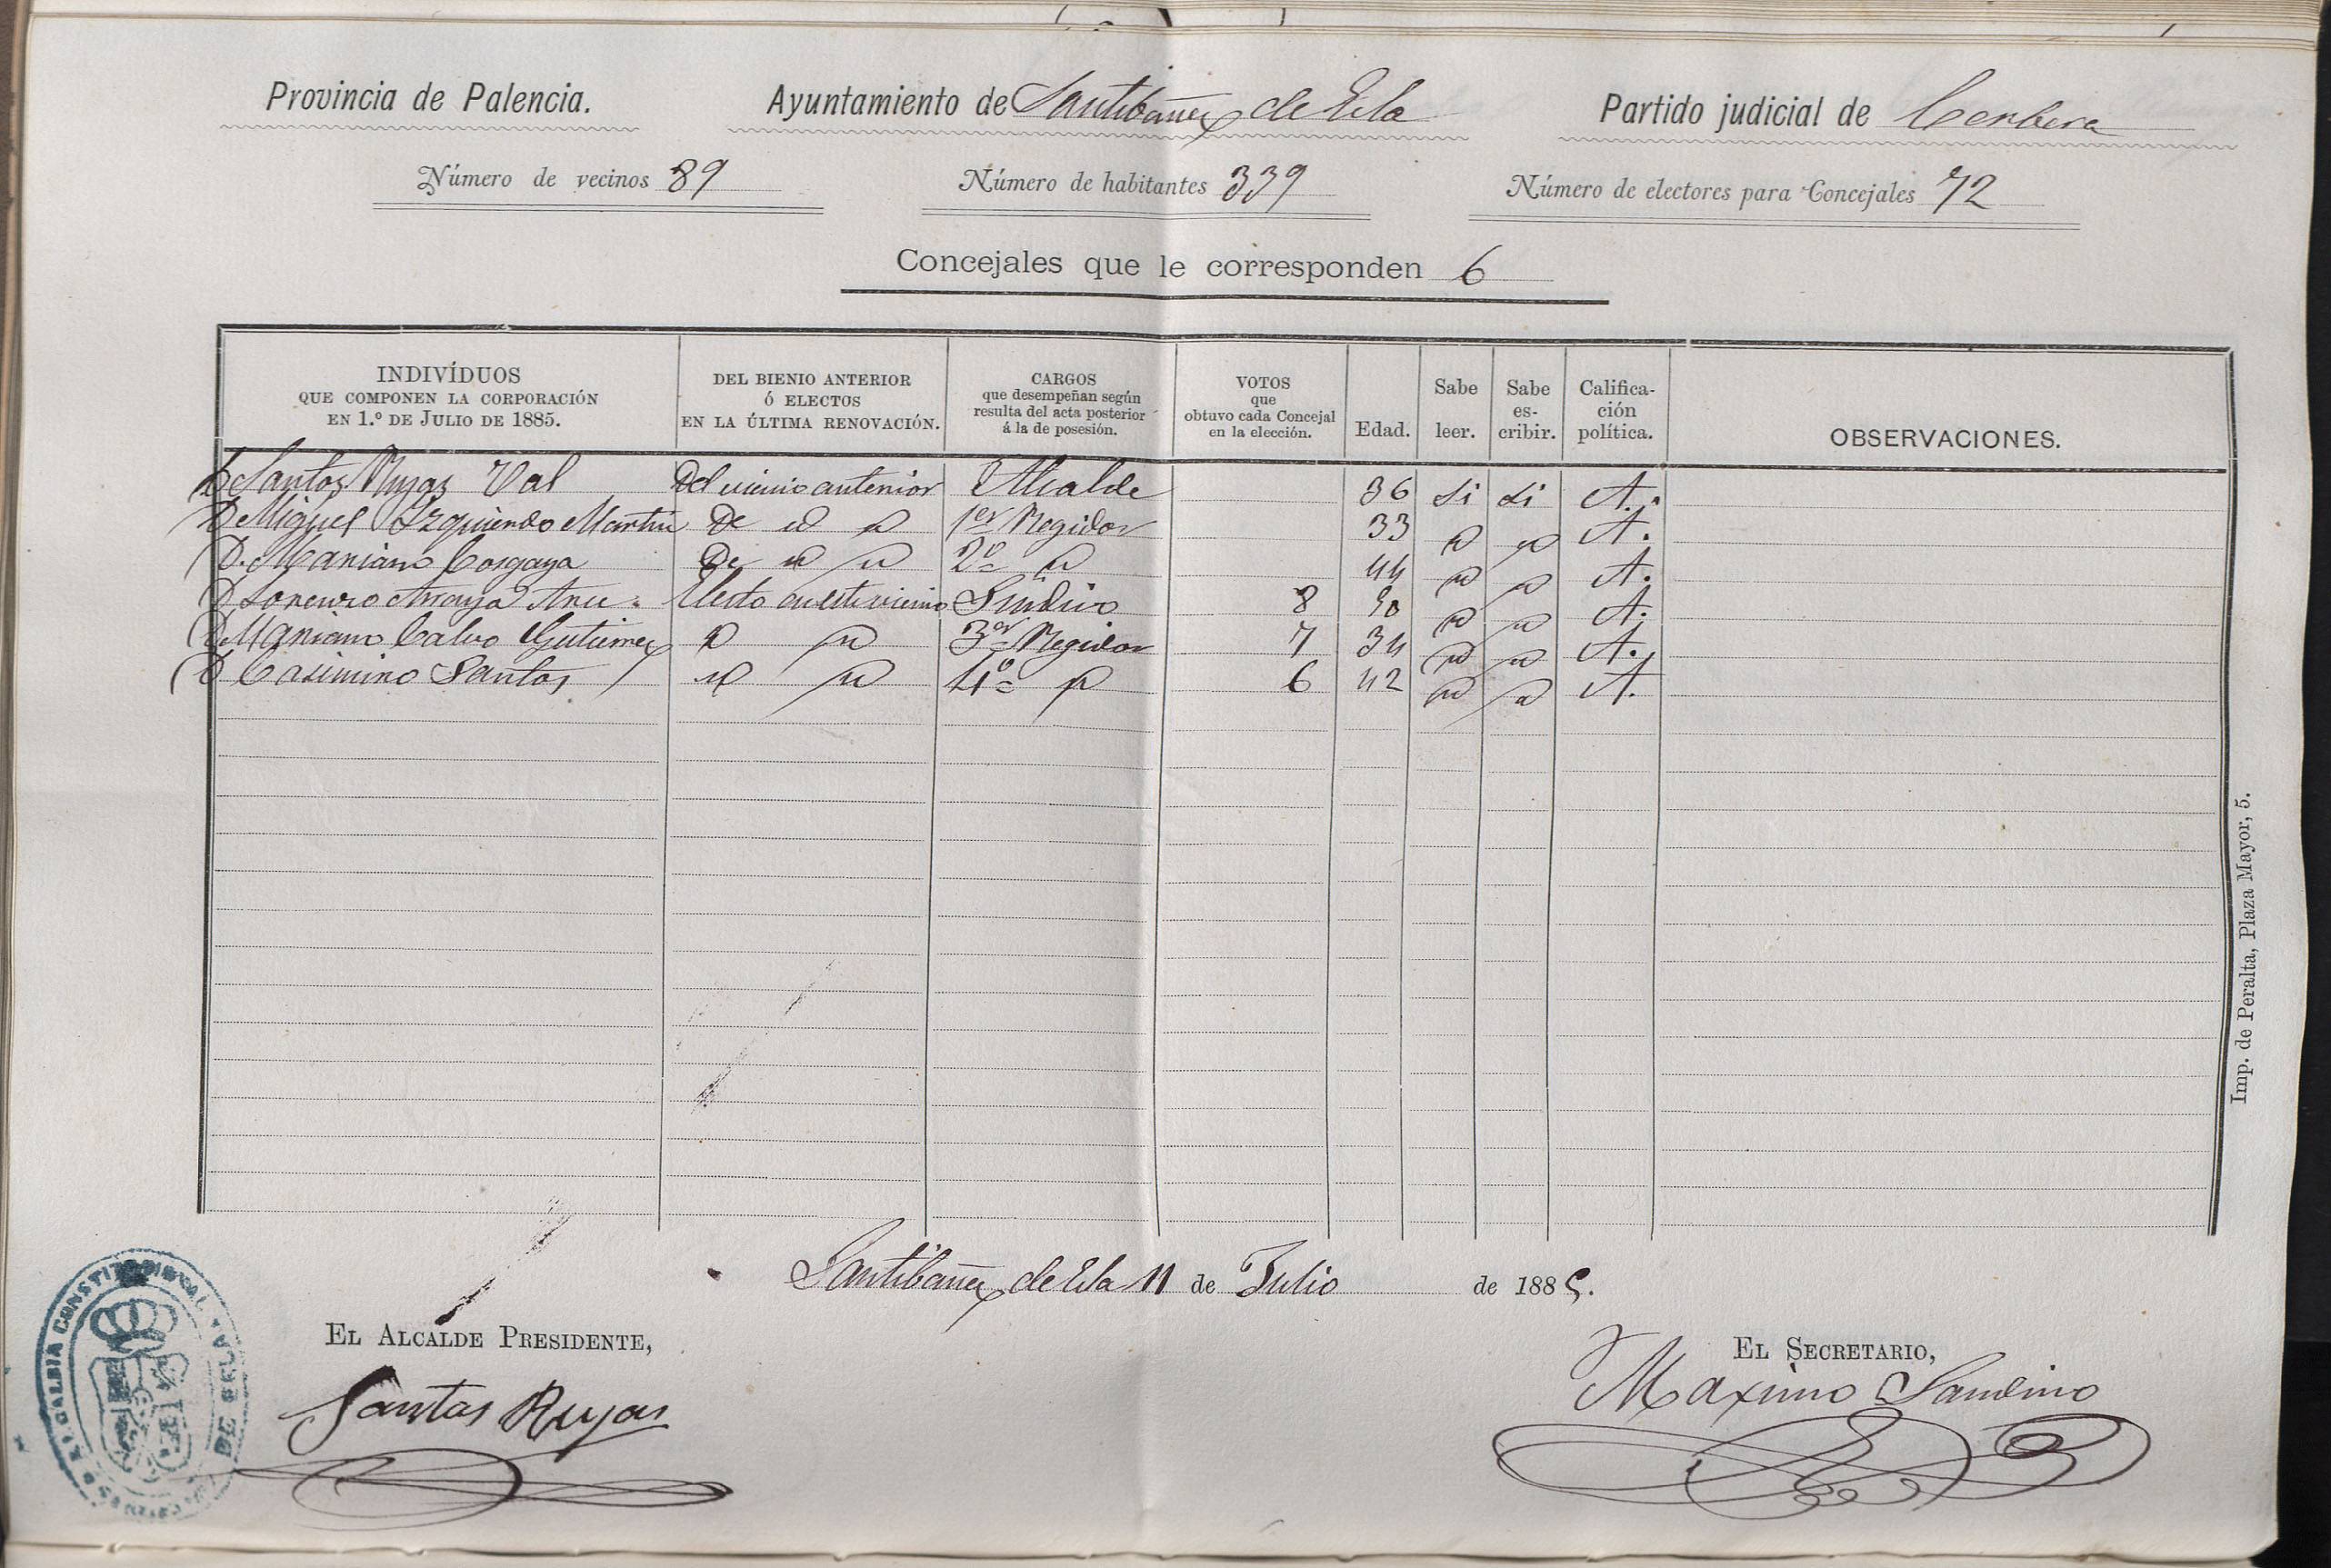 Provincia de Palencia. Ayuntamiento de Santibañez de Ecla Partido judicial de Cerbera
Número de vecinos 89 Número de habitantes 339 Número de electores para Concejales 72
Concejales que le corresponden 6
INDIVÍDUOS QUE COMPONEN LA CORPORACIÓN EN 1.º DE JULIO DE 1885. DEL BIENIO ANTERIOR Ó ELECTOS EN LA ÚLTIMA RENOVACIÓN. CARGOS que desempeñan según resulta del acta posterior á la de posesión. VOTOS que obtuvo cada Concejal en la elección. Edad. Sabe leer. Sabe es-cribir. Califica-ción política. OBSERVACIONES.
D Santos Ruyas Val Del vienio anterior Alcalde 36 Si Si A.
D Miguel Izquierdo Martin De id id 1er Regidor 33 id id A.
D. Mariano Corgaya De id id 2º id 44 id id A.
D Lorenzo Arroyo Electo en este vienio Sindico 8 id id A.
D Mariano Calvo Gutierrez id id 3er Regidor 7 34 id id A.
D Casimiro Santos id id 4º id 6 42 id id A.
Santibañez de Ecla 11 de Julio de 1885.
EL ALCALDE PRESIDENTE, EL SECRETARIO,
Santos Ruyas Maximo Sandino
ALCALDIA CONSTITUCIONAL DE SANTIBAÑEZ DE ECLA
Imp. de Peralta, Plaza Mayor, 5.